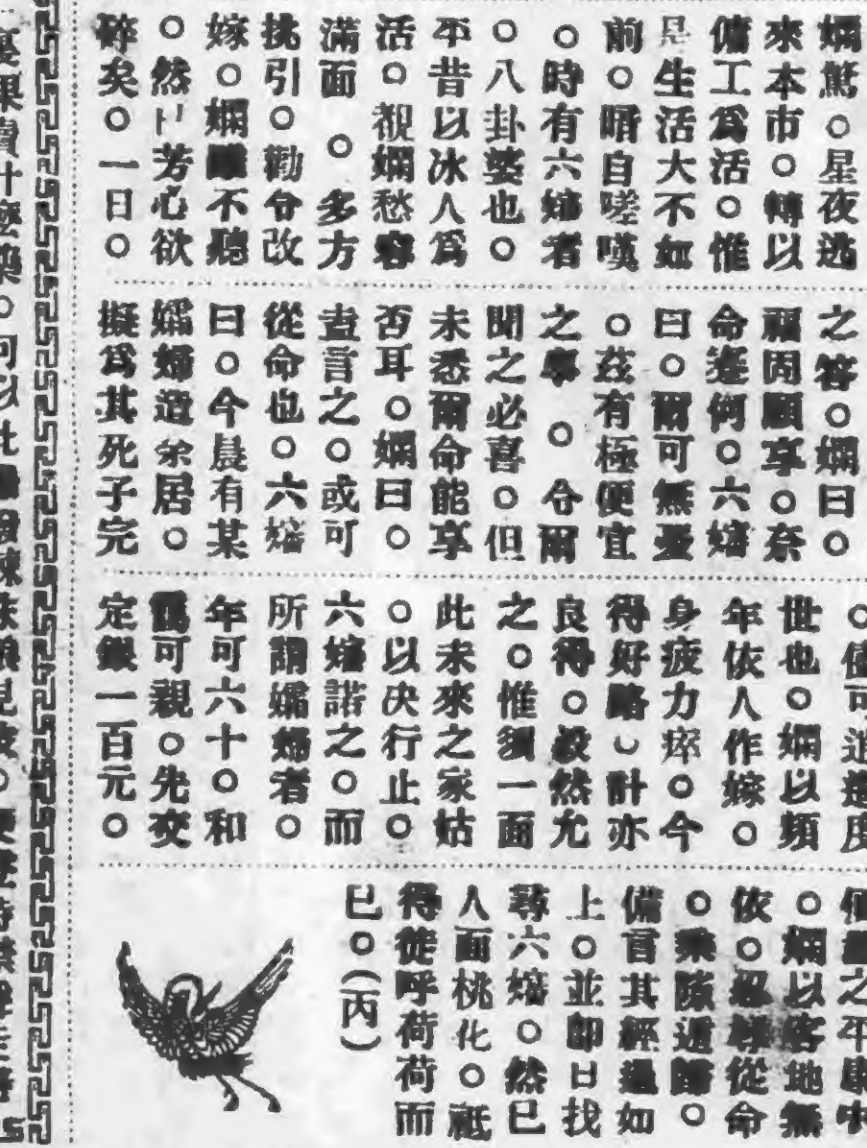 嫻。星夜逃
來本市。轉以
傭工爲活。惟
是生活大不如
前。暗自嗟嘆
。時有六嬸者
。八卦婆也。
平昔以冰人爲
活。覩嫻愁容
滿面。多方
挑引。勸令改
嫁。嫻雖不聽
。然芳心欲
碎矣。一日。
之答。嫻曰。
福固願享。奈
命蹇何。六嬸
曰。爾可無憂
。茲有極便宜
之事。令爾
聞之必喜。但
未悉爾命能享
否耳。嫻曰。
盍言之。或可
從命也。六嬸
曰。今晨有某
孀婦造余居。
擬爲其死子完
。儘可逍遙度
世也。嫻以頻
年依人作嫁。
身疲力瘁。今
得好路。計亦
良得。毅然允
之。惟須一面
此未來之家姑
。以决行止。
六嬸諾之。而
所謂孀婦者。
年可六十。和
藹可親。先交
定銀一百元。
之平康中
。嫻以客地無
依。忍辱從命
。乘隙遁歸。
備言其經過如
上。並即日找
尋六嬸。然已
人面桃化。祗
得徒呼荷荷而
已。(丙)
裏果賣什麼藥。何以